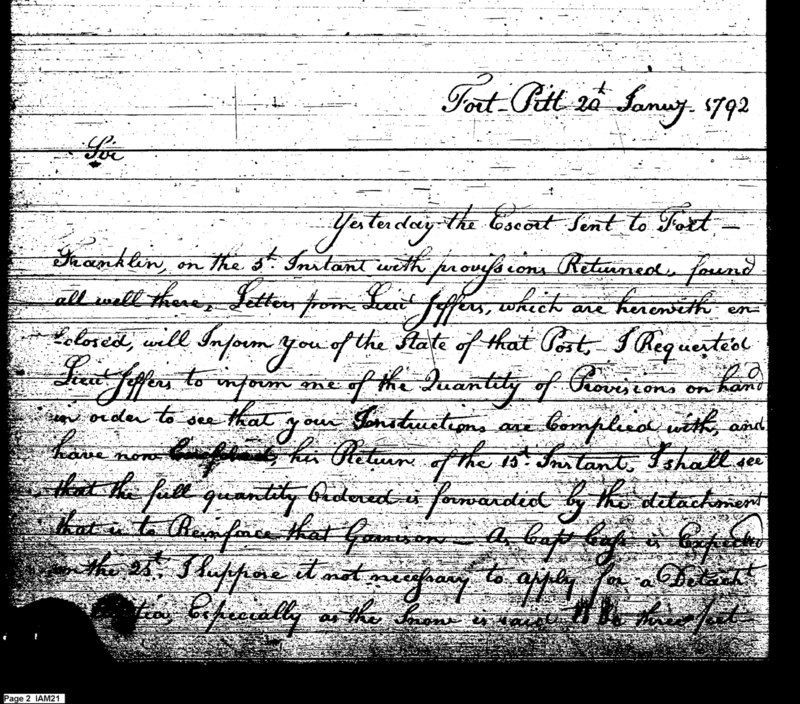 Fort-Pitt 20t Januy. 1792
Sir
Yesterday the Escort Sent to Fort —
Franklin, on the 5t. Instant with provissions Returned, found
all well there, Letters from Lieut Jeffers, which are herewith en
closed, will Inform you of the State of that Post, I Requerted
Lieut Jeffers to inform me of the Quantity of Provisions on hand
in order to see that your Instructions are Complied with, and
have now his Return of the 15t. Instant, I shall see
that the full quantity Ordered is forwarded by the detachment
that is to Reinforce that Garrison — As Capt Cass is Expected
on the 25t. I Suppose it not necessary to apply for a Detacht
Especially as the Snow is said to be three feet
Page 2 IAM21